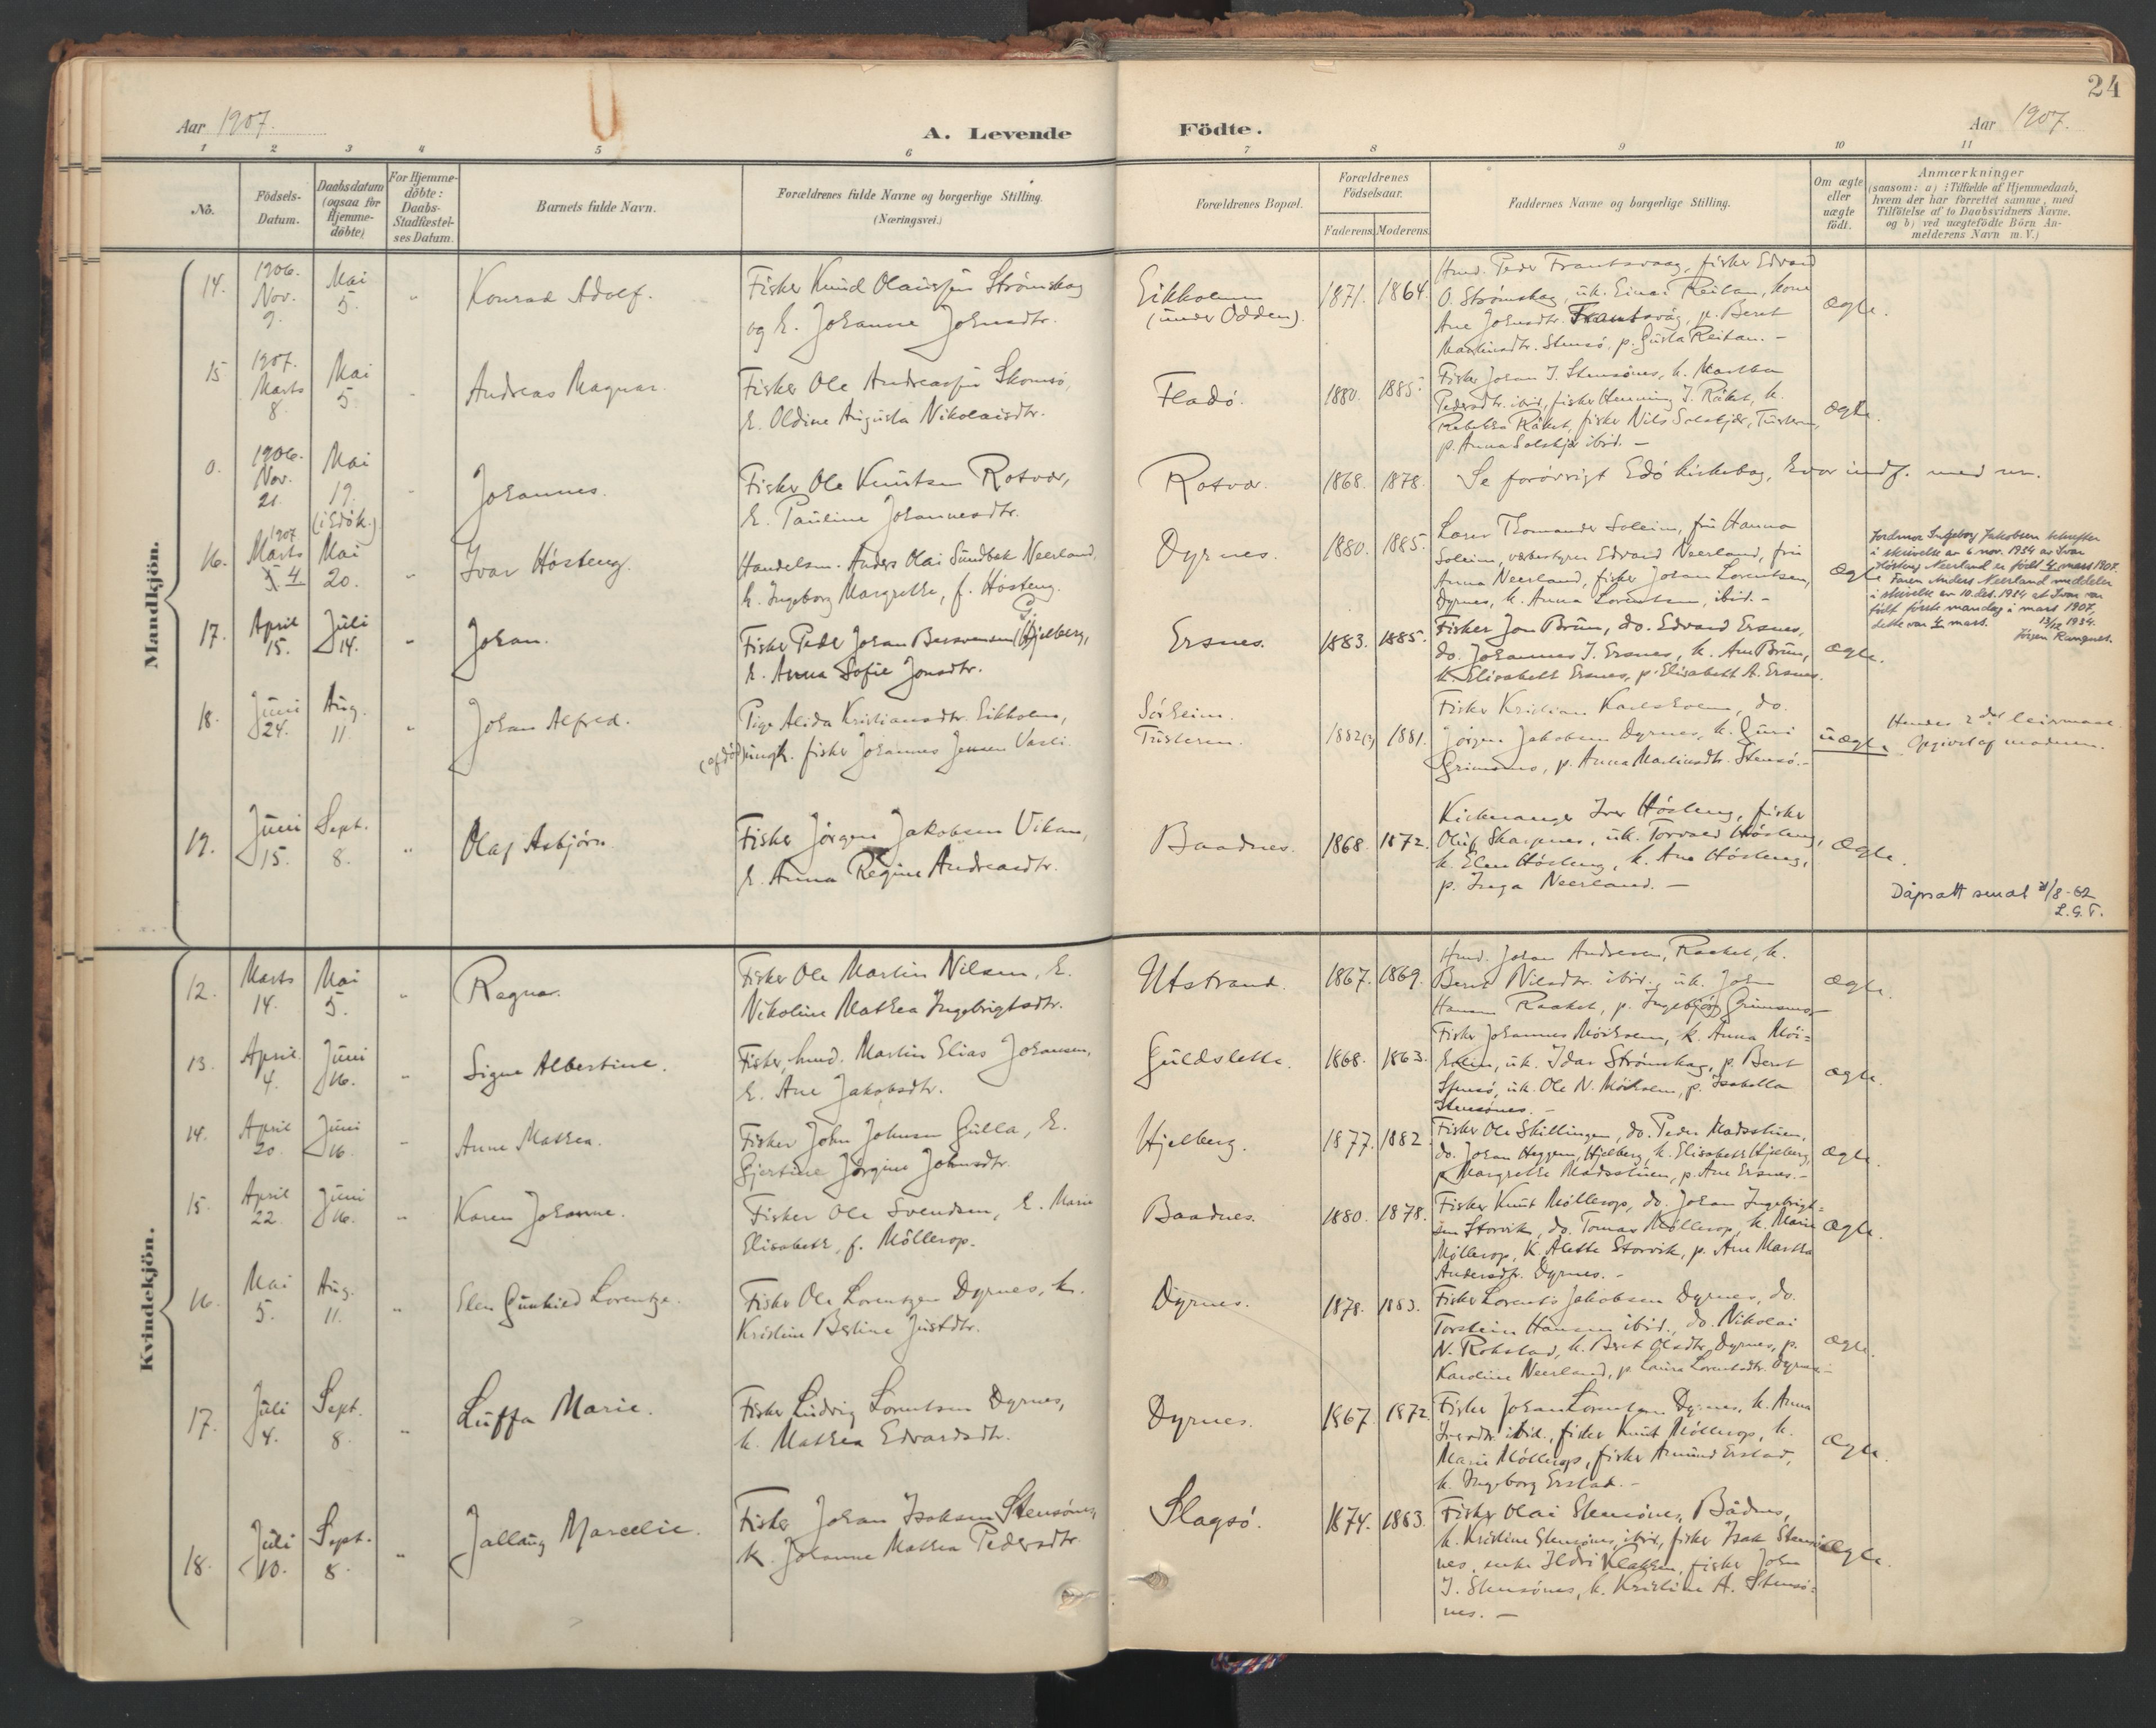 24
Aar 1907.
A. Levende Födte.
Aar 1907.
1 2 3 4 5 6 7 8 9 10 11
No.
Födsels-
Datum.
Daabsdatum
(ogsaa for
Hjemme-
döbte)
For Hjemme-
döbte:
Daabs-
Stadfæstel-
ses Datum.
Barnets fulde Navn.
Forældrenes fulde Navne og borgerlige Stilling.
(Næringsvei.)
Forældrenes Bopæl.
Forældrenes
Födselsaar.
Faderens. Moderens.
Faddernes Navne og borgerlige Stilling.
Om ægte
eller
uægte
födt.
Anmærkninger
(saasom: a) : Tilfælde af Hjemmedaab,
hvem der har forrettet samme, med
Tilföielse af to Daabsvidners Navne,
og b) ved uægtefödte Börn An-
melderens Navn m.V.)
Mandkjön.
14.
1906.
Nov.
9.
Mai
5.
"
Konrad Adolf.
Fisker Knud Olaussen Strømskag
og h. Johanne Johnsdtr.
Eikholmen
(under Odden).
1871. 1864.
Hmd. Peder Frantsvaag, fisker Edvard
O. Strømskag, uk. Einar Reitan, kone
Ane Johnsdtr. Frantsvåg, p. Beret
Martinsdtr. Stensø, p. Gusta Reitan. –
Ægte.
15
1907.
Marts
8.
Mai
5.
"
Andreas Magnar.
Fisker Ole Andreassen Skomsö,
h. Oldine Augusta Nikolaisdtr.
Fladö.
1880. 1885.
Fisker Johan I. Stensönes, k. Marthea
Pedersdtr. ibid, fisker Henning J. Råket, k.
Rebekka Råket, fisker Nils Solskjær, Tusteren,
p. Anna Solskjær ibid. –
Ægte.
0.
1906.
Nov.
21.
Mai
19.
(i Edö k.)
"
Johannes.
Fisker Ole Knutsen Rotvær,
h. Pauline Johannesdtr.
Rotvær.
1868. 1878.
Se forövrigt Edö kirkebog, hvor indf. med nr.
16.
1907
Marts
5. 4.
Mai
20.
"
Ivar Høsteng.
Handelsm. Anders Olai Sundbak Neerland,
h. Ingeborg Margrethe, f. Høsteng.
Dyrnes.
1880. 1885.
Lærer Thomander Soleim, fru Hanna
Soleim, værbestyrer Edvard Neerland, fru
Anna Neerland, fisker Johan Lorentsen,
Dyrnes, k. Anna Lorentsen, ibid. –
Ægte
Jordmor Ingeborg Jakobsen bekrefter
i skrivelse av 6 nov. 1934 av Ivar
Høsteng Neerland er født 4. mars 1907.
Faren Anders Neerland meddeler
i skrivelse av 10. des. 1934 at Ivar var
født første mandag i mars 1907,
dette var 4. mars. 13/12 1934.
Jörgen Rangnes.
17.
April
15.
Juli
14.
"
Johan.
Fisker Peder Johan Bersvensen (G) Hjelberg,
h. Anna Sofie Jonsdtr.
Ersnes.
1883. 1885.
Fisker Jon Bruun, do. Edvard Ersnes,
do. Johannes I. Ersnes, k. Ane Bruun,
k. Elisabeth Ersnes, p. Elisabeth A. Ersnes.
Ægte.
18.
Juni
24.
Aug.
11.
"
Johan Alfred.
Pige Alida Kristiansdtr. Eikholm,
(afdöd) ungk. fisker Johannes Jensen
Sörheim.
Tusteren.
1882(?) 1881.
Fisker Kristian Karlsholm, do.
Jörgen Jakobsen Dyrnes, k. Guri
Grimsmo, p. Anna Martinsdtr. Stensö. –
uægte
Hendes 2det leiermaal
Opgivet af moderen.
19.
Juni
15.
Sept.
8.
"
Olaf Asbjörn
Fisker Jörgen Jakobsen Vikan,
h. Anna Regine Andreasdtr.
Baadnes.
1868. 1872.
Kirkesanger Iver Hösteng, fisker
Oluf Skarpnes, uk. Torvald Hösteng,
k. Elen Hösteng, k. Ane Hösteng,
p. Inga Neerland. –
Ægte.
Dåpsatt sendt 21/8-62
L.G.T.
Kvindekjön.
12.
Marts
14.
Mai
5.
"
Ragna.
Fisker Ole Martin Nilsen, h.
Nikoline Mathea Ingebrigtsdtr.
Utstrand.
1867. 1869.
Hmd. Johan Andresen, Raaket, k.
Beret Nilsdtr. ibid., uk. John
Hansen Raaket, p. Ingebjörg Grimsmo. –
Ægte.
13.
April
4.
Juni
16.
"
Signe Albertine.
Fisker, hmd. Martin Elias Johansen,
h. Ane Jakobsdtr.
Guldslette.
1868. 1863.
Fisker Johannes Möiholm, k. Anna Möi-
holm, uk. Idar Strömskag, p. Beret
Stensö, uk. Ole N. Möiholm, p. Isabella
Stensönes. –
Ægte.
14.
April
20.
Juni
16.
"
Anne Mathea.
Fisker John Johnsen Gulla, h.
Gjertine Jörgine Johnsdtr.
Hjelberg.
1877. 1882
Fisker Ole Skillingen, do. Peder Madsstuen,
do. Johan Heggem, Hjelberg, k. Elisabeth Hjelberg,
p. Margrethe Madsstuen, p. Ane Ersnes. –
Ægte.
15.
April
22.
Juni
16.
"
Karen Johanne.
Fisker Ole Svendsen, h. Marie
Elisabeth, f. Möllerop.
Baadnes.
1880. 1878.
Fisker Knut Möllerop, do. Johan Ingebrigt-
sen Storvik, do. Tomas Möllerop, k. Marie
Möllerop, k. Alette Storvik, p. Ane Martha
Andersdtr. Dyrnes. –
Ægte.
16.
Mai
5.
Aug.
11.
"
Elen Gunhild Lorentze.
Fisker Ole Lorentzen Dyrnes, k.
Kristine Bertine Justdtr.
Dyrnes.
1878. 1883.
Fisker Lorents Jakobsen Dyrnes, do.
Torstein Hansen ibid., do. Nikolai
N. Rokstad, k. Beret Olsdtr. Dyrnes, p.
Karoline Neerland, p. Laura Lorentsdtr. Dyrnes –
Ægte.
17.
Juli
4.
Sept.
8.
"
Luffa Marie.
Fisker Ludvig Lorentsen Dyrnes,
k. Mathea Edvardsdtr.
Dyrnes.
1867. 1872.
Fisker Johan Lorentsen Dyrnes, k. Anna
Iversdtr. ibid., fisker Knut Möllerop, k.
Marie Möllerop, fisker Amund Erstad,
k. Ingeborg Erstad. –
Ægte.
18.
Juli
10.
Sept.
8.
"
Jallaug Marcelie.
Fisker Johan Isaksen Stensönes,
k. Johanne Mathea Pedersdtr.
Slagsö.
1874. 1883.
Fisker Olai Stensönes, Bådnes,
k. Kristine Stensönes, ibid, fisker Isak Stensö-
nes, enke Ildri Klakken, fisker John
I. Stensönes, k. Kristine A. Stensö-
nes. –
Ægte.